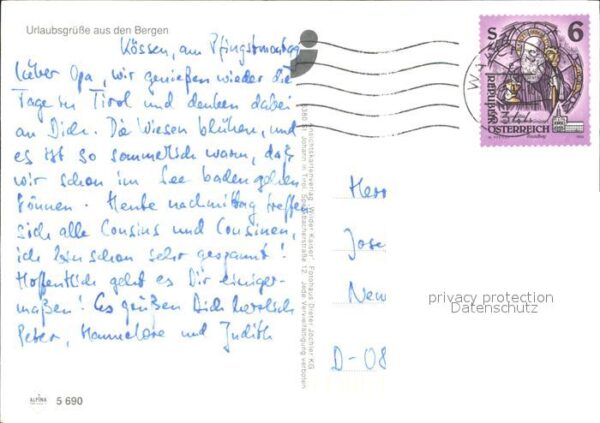 Urlaubsgrüße aus den Bergen
Kössen, am Pfingstmontag
Lieber Opa, wir genießen wieder die
Tage in Tirol und denken dabei
an Dich. Die Wiesen blühen, und
es ist so sommerlich warm, daß
wir schon im See baden gehen
können. Heute nachmittag treffen
sich alle Cousins und Cousinen,
ich bin schon sehr gespannt!
Hoffentlich geht es Dir einiger-
maßen! Es grüßen Dich herzlich
Peter, Hannelore und Judith
ALPINA
5 690
Ansichtskartenverlag "Wilder Kaiser" Fotohaus Dieter Jöchler KG
6380 St. Johann in Tirol, Speckbacherstraße 12 Jede Vervielfältigung verboten
S 6
REPUBLIK
ÖSTERREICH
Herr
Jose
New
D-08
privacy protection
Datenschutz